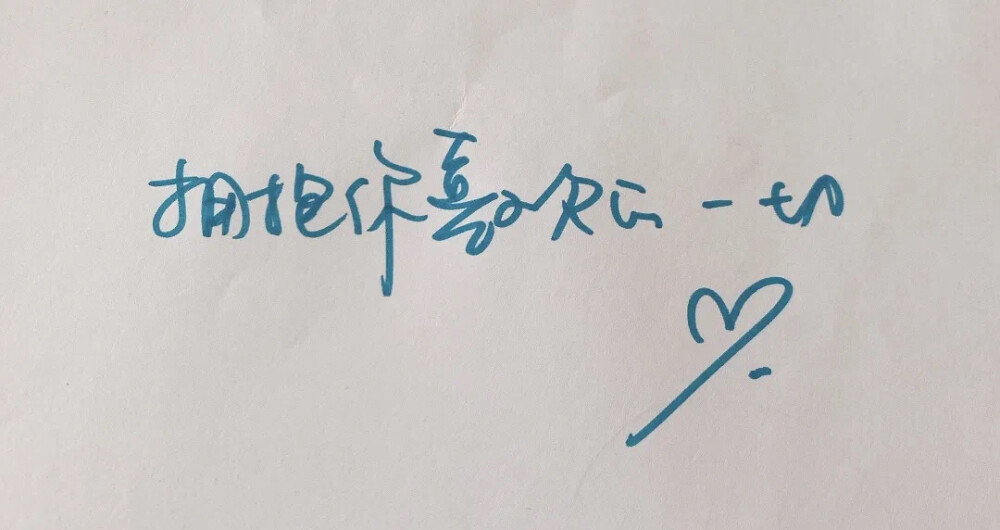 拥抱你喜欢的一切